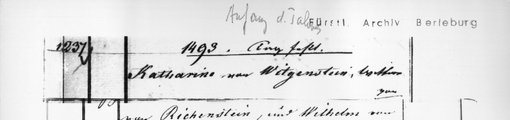 Anfang d. Tabu
Fürstl. Archiv Berleburg
1237
1493.
Katharine von Witgenstein,
von
von Richenstein, und Wilhelm von